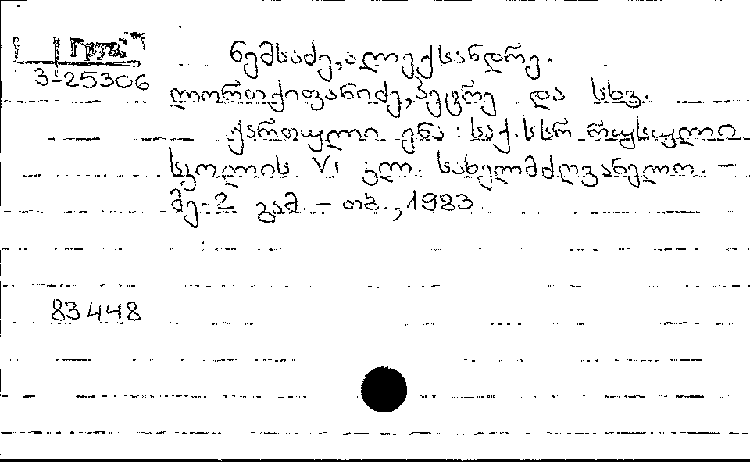 Груз
3-25306
ნემსაძე, ალექსანდრე.
ლორთქიფანიძე, პეტრე და სხვ.
ქართული ენა : საქ. სსრ რუსული
სკოლის VI კლ. სახელმძღვანელო. –
მე-2 გამ. – თბ., 1983
83448